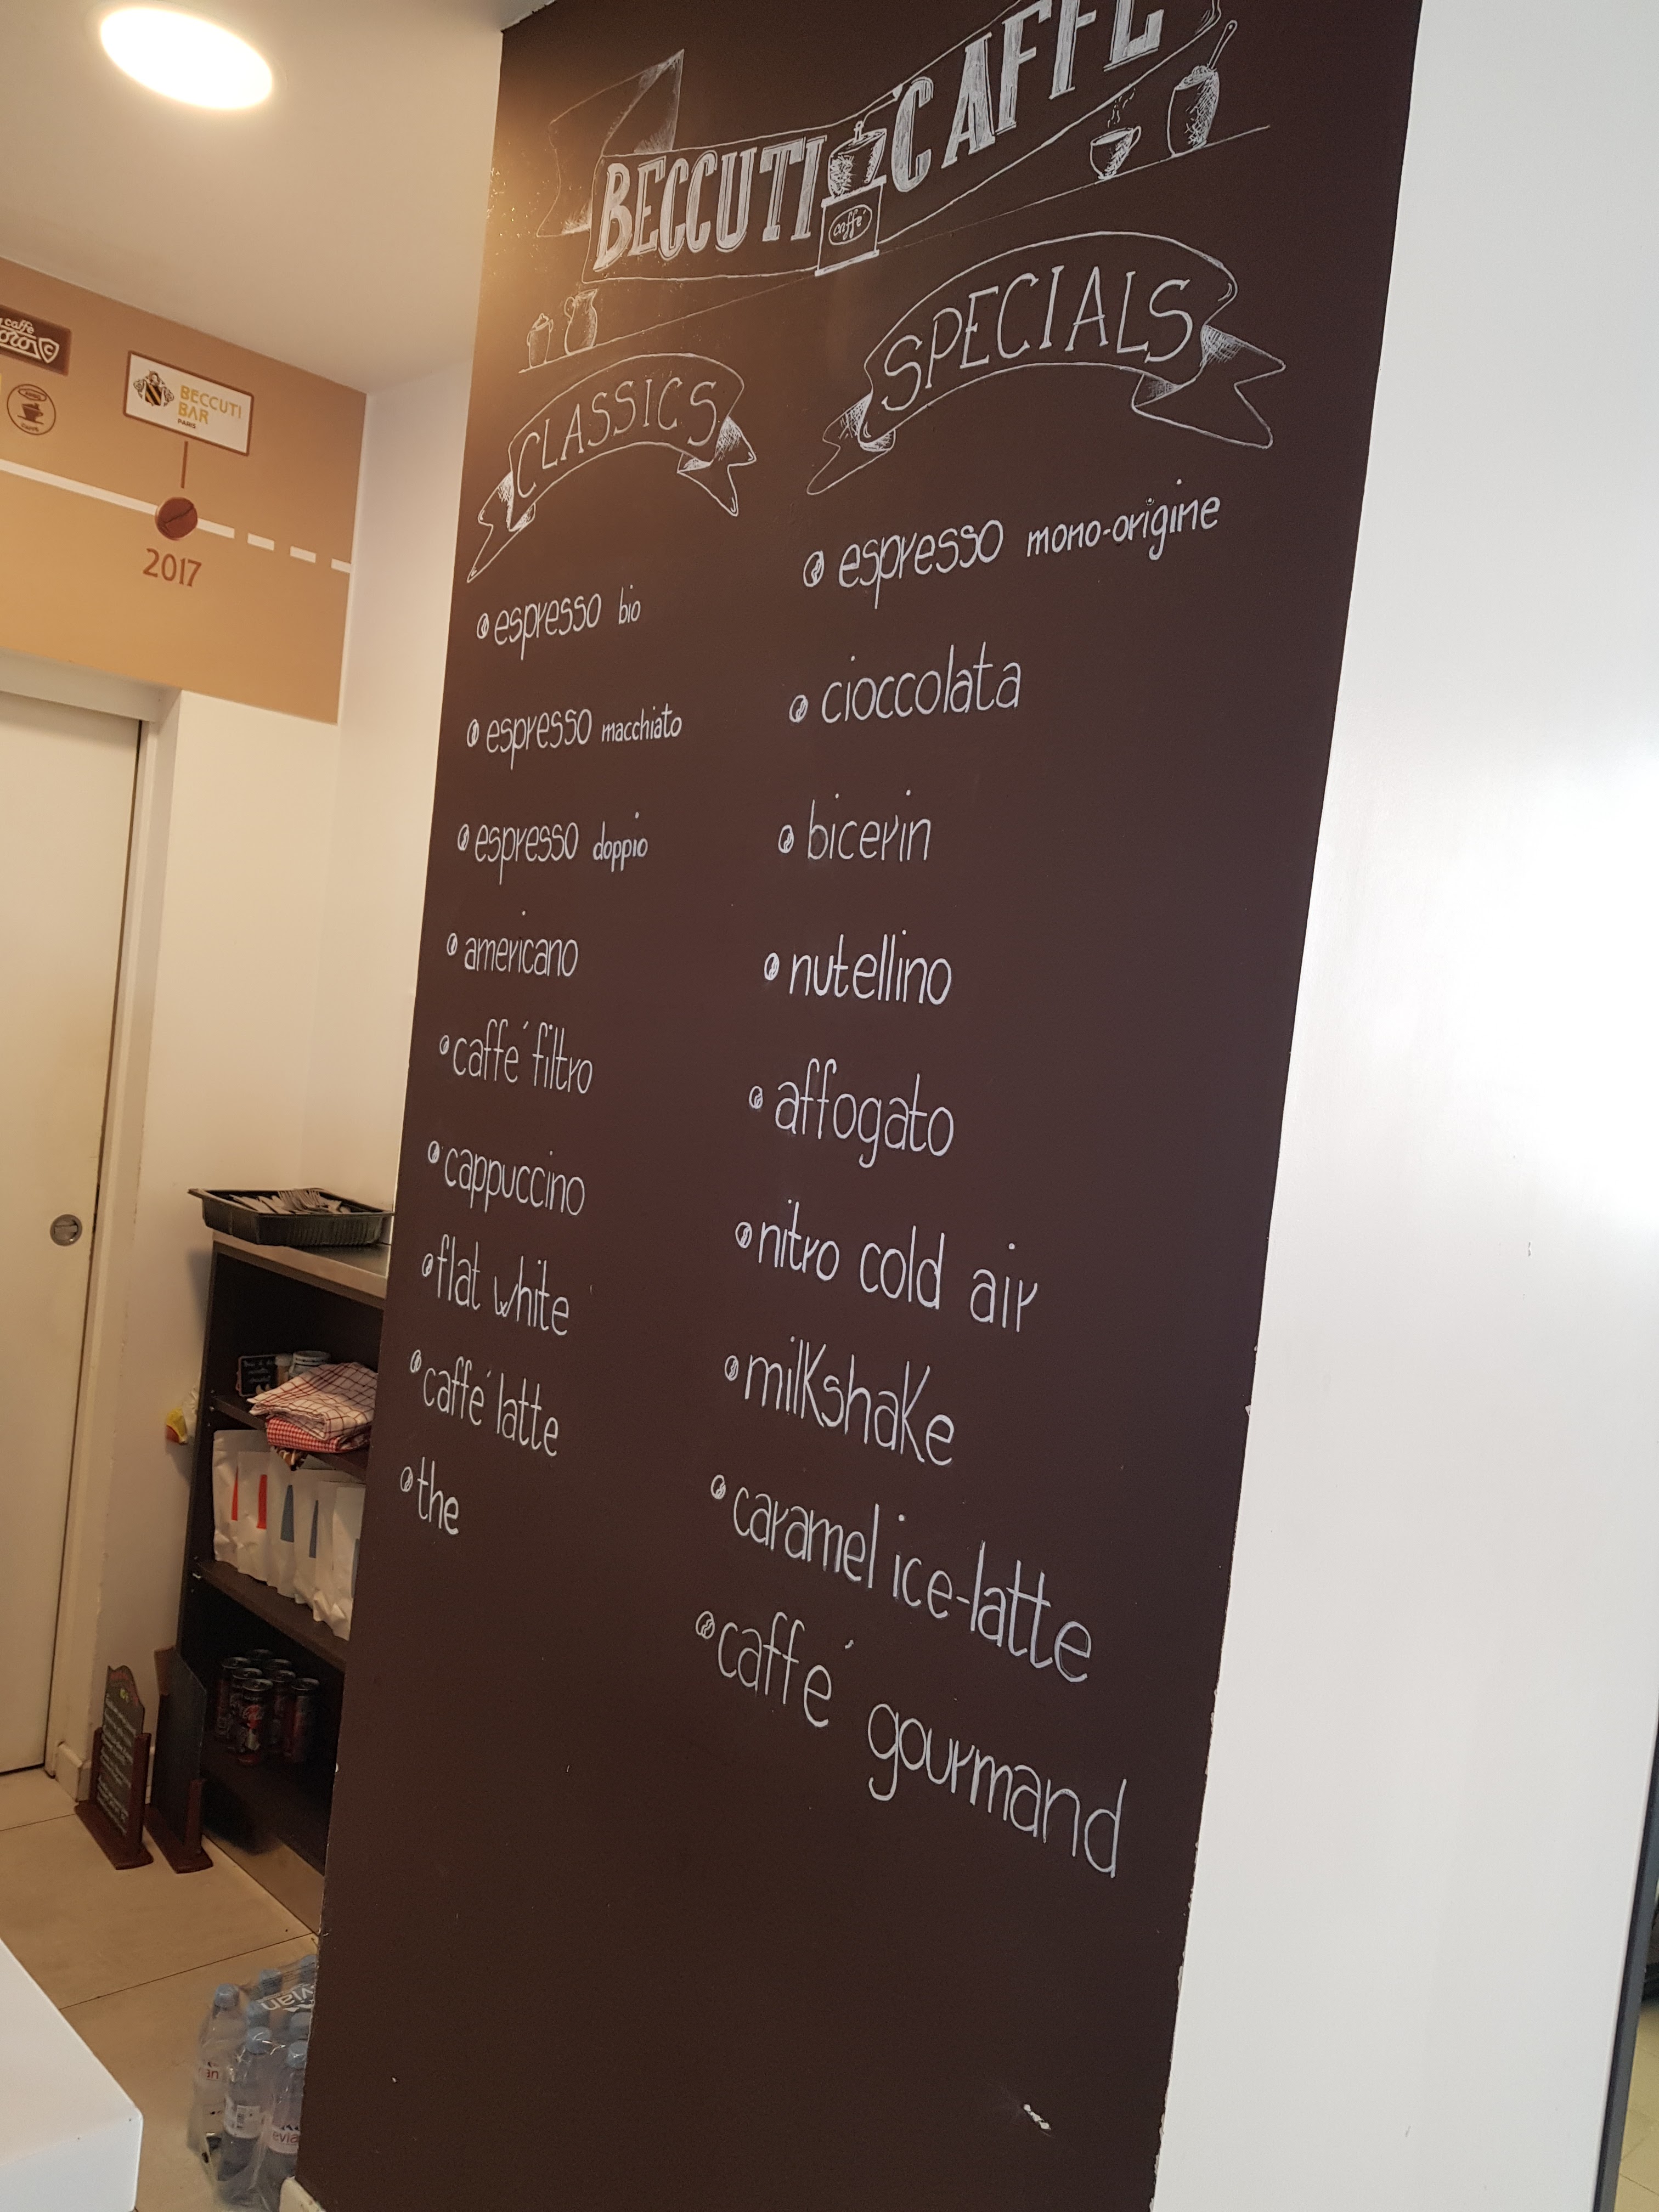 BECCUTI CAFFÈ
caffé
CLASSICS
espresso bio
espresso macchiato
espresso doppio
americano
caffe' filtro
cappuccino
flat white
caffe' latte
the
SPECIALS
espresso mono-origine
cioccolata
bicerin
nutellino
affogato
nitro cold air
milkshake
caramel ice-latte
caffe' gourmand
caffè
BECCUTI
BAR
PARIS
2017
evian
evian